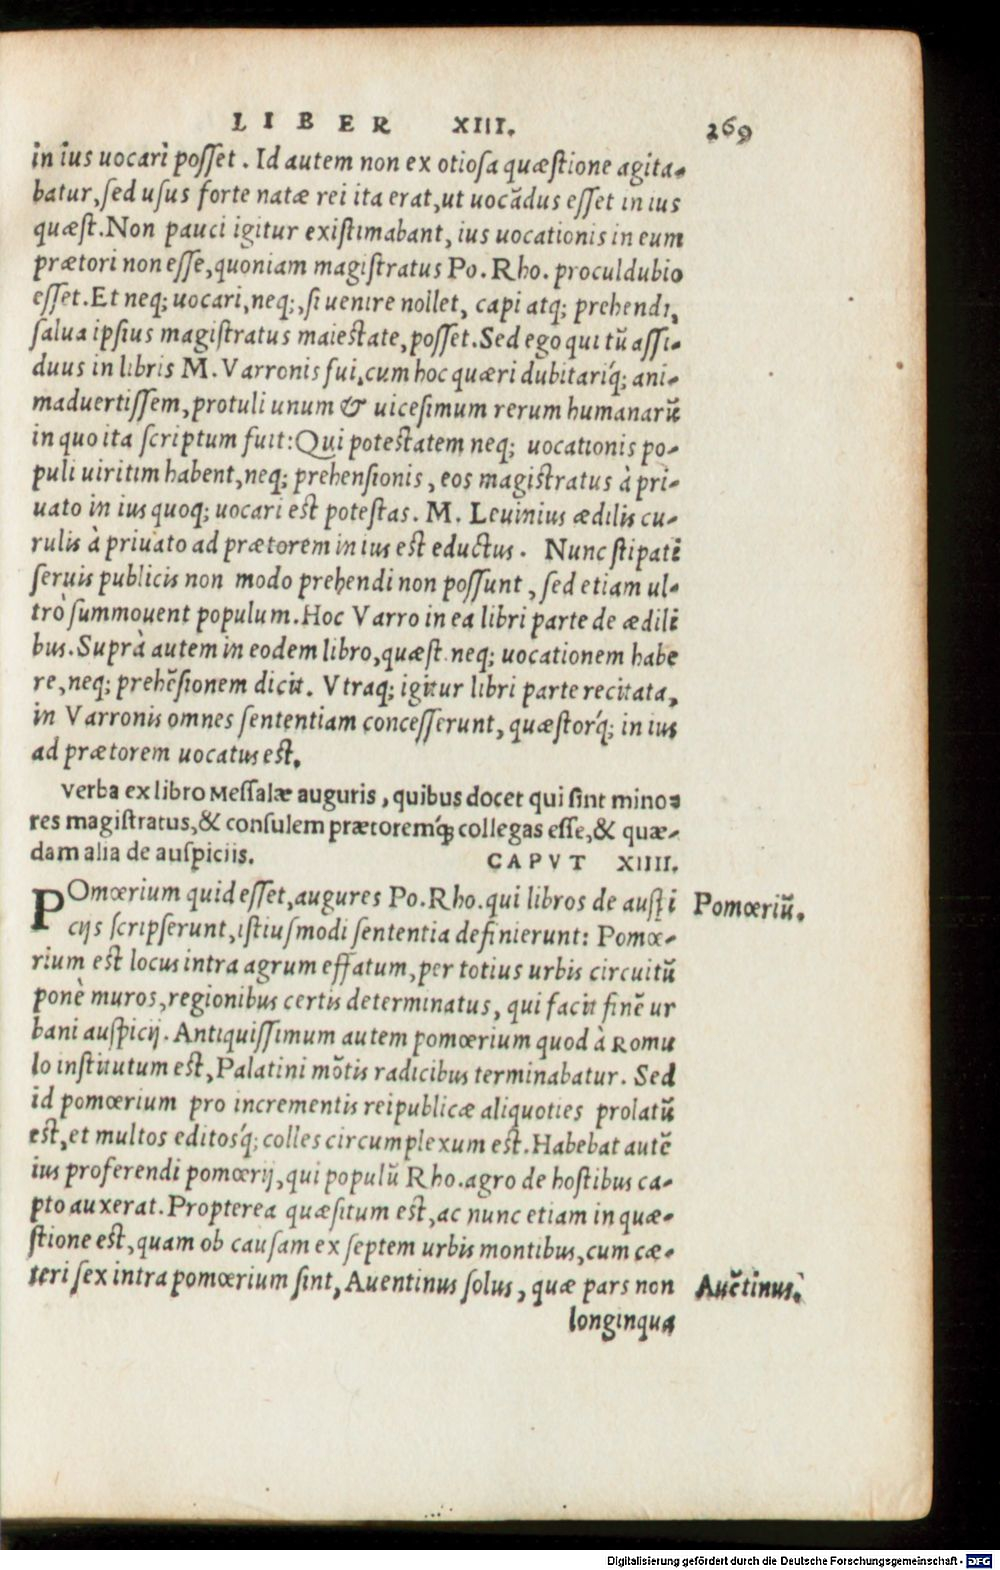 LIBER XIII. 269
in ius uocari posset. Id autem non ex otiosa quæstione agita-
batur, sed usus forte natæ rei ita erat, ut uocādus esset in ius
quæst. Non pauci igitur existimabant, ius uocationis in eum
prætori non esse, quoniam magistratus Po. Rho. proculdubio
esset. Et neq; uocari, neq;, si uenire nollet, capi atq; prehendi,
salua ipsius magistratus maiestate, posset. Sed ego qui tū assi-
duus in libris M. Varronis fui, cum hoc quæri dubitariq́; ani-
maduertissem, protuli unum & uicesimum rerum humanarū
in quo ita scriptum fuit: Qui potestatem neq; uocationis po-
puli uiritim habent, neq; prehensionis, eos magistratus à pri-
uato in ius quoq; uocari est potestas. M. Leuinius ædilis cu-
rulis à priuato ad prætorem in ius est eductus. Nunc stipati
seruis publicis non modo prehendi non possunt, sed etiam ul-
trò summouent populum. Hoc Varro in ea libri parte de ædili
bus. Suprà autem in eodem libro, quæst. neq; uocationem habe
re, neq; prehēsionem dicit. Vtraq; igitur libri parte recitata,
in Varronis omnes sententiam concesserunt, quæstorq́; in ius
ad prætorem uocatus est.
Verba ex libro Messalæ auguris, quibus docet qui sint mino-
res magistratus, & consulem prætoremq́; collegas esse, & quæ-
dam alia de auspiciis. CAPVT XIIII.
POmœrium quid esset, augures Po. Rho. qui libros de auspi
cijs scripserunt, istiusmodi sententia definierunt: Pomœ-
rium est locus intra agrum effatum, per totius urbis circuitū
ponè muros, regionibus certis determinatus, qui facit finē ur
bani auspicij. Antiquissimum autem pomœrium quod à Romu
lo institutum est, Palatini mōtis radicibus terminabatur. Sed
id pomœrium pro incrementis reipublicæ aliquoties prolatū
est, et multos editosq́; colles circumplexum est. Habebat autē
ius proferendi pomœrij, qui populū Rho. agro de hostibus ca-
pto auxerat. Propterea quæsitum est, ac nunc etiam in quæ-
stione est, quam ob causam ex septem urbis montibus, cum cæ-
teri sex intra pomœrium sint, Auentinus solus, quæ pars non
longinqua
Pomœriū.
Auētinus.
Digitalisierung gefördert durch die Deutsche Forschungsgemeinschaft - DFG